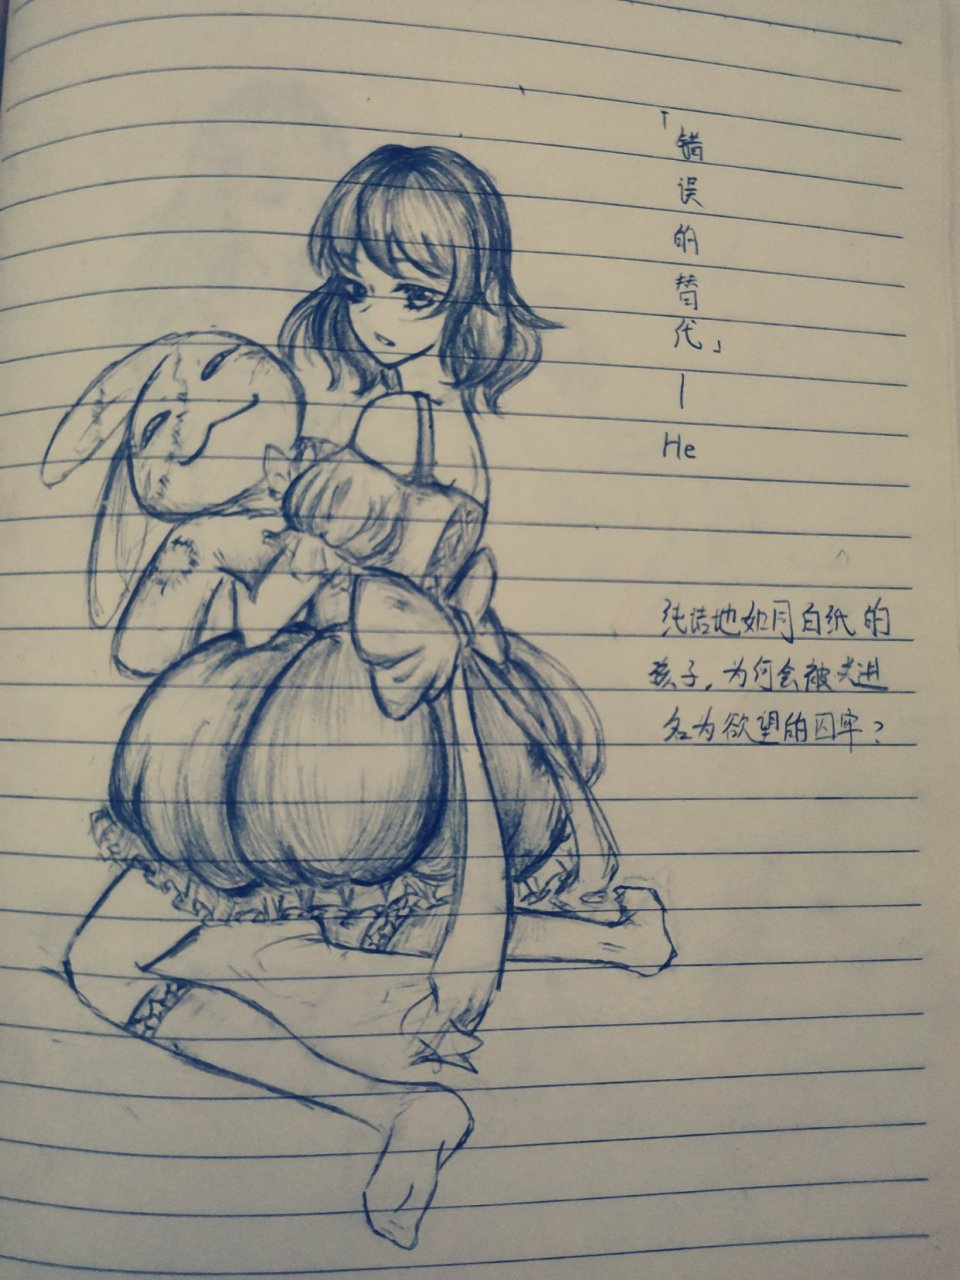 「错误的替代」—He
纯洁地如同白纸的
孩子，为何会被关进
名为欲望的囚牢？